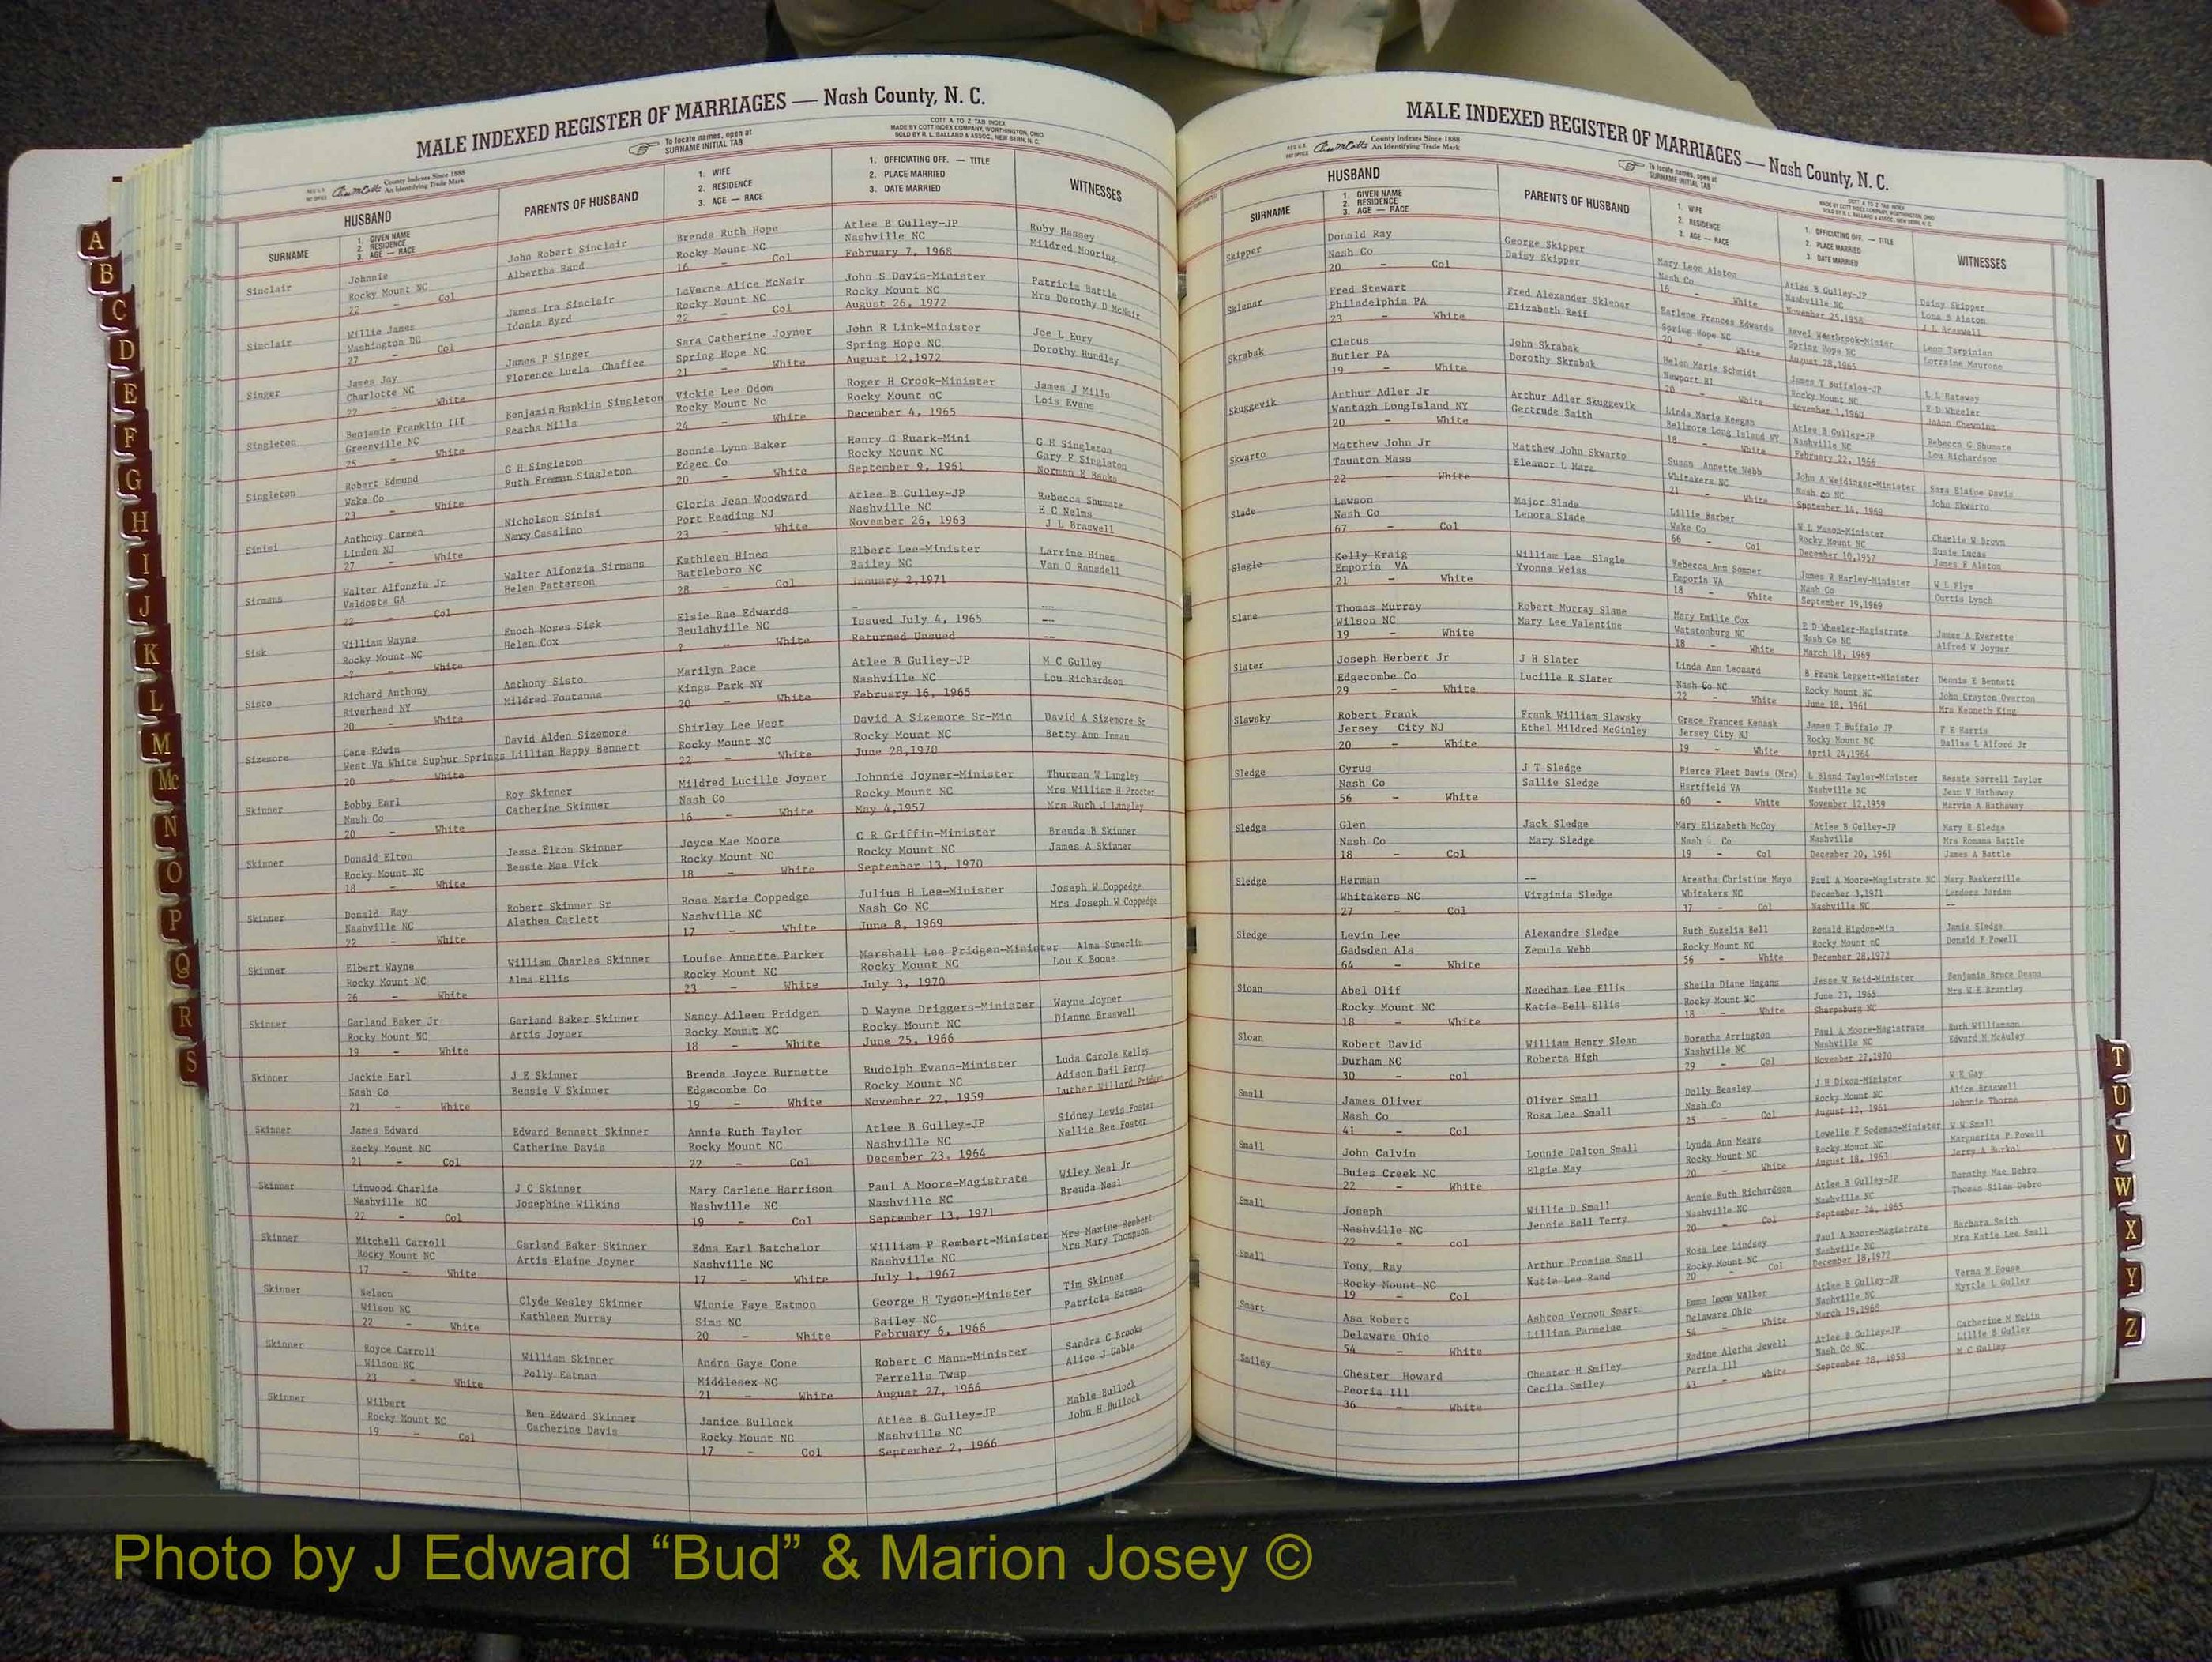 MALE INDEXED REGISTER OF MARRIAGES — Nash County, N. C.
To locate names, open at
SURNAME INITIAL TAB
COTT A TO Z TAB INDEX
MADE BY COTT INDEX COMPANY, WORTHINGTON, OHIO
SOLD BY R. L. BALLARD & ASSOC., NEW BERN, N. C.
County Indexes Since 1888
An Identifying Trade Mark
HUSBAND
SURNAME
1. GIVEN NAME
2. RESIDENCE
3. AGE — RACE
PARENTS OF HUSBAND
1. WIFE
2. RESIDENCE
3. AGE — RACE
1. OFFICIATING OFF. — TITLE
2. PLACE MARRIED
3. DATE MARRIED
WITNESSES
Sinclair Johnnie John Robert Sinclair Brenda Ruth Hope Atlee B Gulley-JP Ruby Hassey
Rocky Mount NC Albertha Rand Rocky Mount NC Nashville NC Mildred Mooring
22 - Col 16 - Col February 7, 1968
Sinclair Willie James James Ira Sinclair LaVerne Alice McNair John S Davis-Minister Patricia Battle
Washington DC Idonia Byrd Rocky Mount NC Rocky Mount NC Mrs Dorothy D McNair
27 - Col 22 - Col August 26, 1972
Singer James Jay James P Singer Sara Catherine Joyner John R Link-Minister Joe L Eury
Charlotte NC Florence Luela Chaffee Spring Hope NC Spring Hope NC Dorothy Hundley
22 - White 21 - White August 12,1972
Singleton Benjamin Franklin III Benjamin Franklin Singleton Vickie Lee Odom Roger H Crook-Minister James J Mills
Greenville NC Reatha Mills Rocky Mount Nc Rocky Mount nC Lois Evans
25 - White 24 - White December 4, 1965
Singleton Robert Edmund G H Singleton Bonnie Lynn Baker Henry G Ruark-Mini G H Singleton
Wake Co Ruth Freeman Singleton Edgec Co Rocky Mount NC Gary F Singleton
23 - White 20 - White September 9, 1961 Norman E Banks
Sinisi Anthony Carmen Nicholson Sinisi Gloria Jean Woodward Atlee B Gulley-JP Rebecca Shumate
Linden NJ Nancy Casalino Port Reading NJ Nashville NC E C Nelms
27 - White 23 - White November 26, 1963 J L Braswell
Sirmans Walter Alfonzia Jr Walter Alfonzia Sirmans Kathleen Hines Elbert Lee-Minister Larrine Hines
Valdosta GA Helen Patterson Battleboro NC Bailey NC Van O Ransdell
22 - Col 28 - Col January 2,1971
Sisk William Wayne Enoch Moses Sisk Elsie Rae Edwards - ---
Rocky Mount NC Helen Cox Beulahville NC Issued July 4, 1965 ---
-? - White ? - White Returned Unsued ---
Sisto Richard Anthony Anthony Sisto Marilyn Pace Atlee B Gulley-JP M C Gulley
Riverhead NY Mildred Fontanna Kings Park NY Nashville NC Lou Richardson
20 - White 20 - White February 16, 1965
Sizemore Gene Edwin David Alden Sizemore Shirley Lee West David A Sizemore Sr-Min David A Sizemore Sr
West Va White Suphur Springs Lillian Happy Bennett Rocky Mount NC Rocky Mount NC Betty Ann Inman
20 - White 22 - White June 28,1970
Skinner Bobby Earl Roy Skinner Mildred Lucille Joyner Johnnie Joyner-Minister Thurman W Langley
Nash Co Catherine Skinner Nash Co Rocky Mount NC Mrs William H Proctor
20 - White 16 - White May 4,1957 Mrs Ruth J Langley
Skinner Donald Elton Jesse Elton Skinner Joyce Mae Moore C R Griffin-Minister Brenda B Skinner
Rocky Mount NC Bessie Mae Vick Rocky Mount NC Rocky Mount NC James A Skinner
18 - White 18 - White September 13, 1970
Skinner Donald Ray Robert Skinner Sr Rose Marie Coppedge Julius H Lee-Minister Joseph W Coppedge
Nashville NC Alethea Catlett Nashville NC Nash Co NC Mrs Joseph W Coppedge
22 - White 17 - White June 8, 1969
Skinner Elbert Wayne William Charles Skinner Louise Annette Parker Marshall Lee Pridgen-Minister Alma Sumerlin
Rocky Mount NC Alma Ellis Rocky Mount NC Rocky Mount NC Lou K Boone
26 - White 23 - White July 3, 1970
Skinner Garland Baker Jr Garland Baker Skinner Nancy Aileen Pridgen D Wayne Driggers-Minister Wayne Joyner
Rocky Mount NC Artis Joyner Rocky Mount NC Rocky Mount NC Dianne Braswell
19 - White 18 - White June 25, 1966
Skinner Jackie Earl J E Skinner Brenda Joyce Burnette Rudolph Evans-Minister Luda Carole Kelley
Nash Co Bessie V Skinner Edgecombe Co Rocky Mount NC Adison Dail Perry
21 - White 19 - White November 22, 1959 Luther Willard Pridgen
Skinner James Edward Edward Bennett Skinner Annie Ruth Taylor Atlee B Gulley-JP Sidney Lewis Foster
Rocky Mount NC Catherine Davis Rocky Mount NC Nashville NC Nellie Ree Foster
21 - Col 22 - Col December 23, 1964
Skinner Linwood Charlie J C Skinner Mary Carlene Harrison Paul A Moore-Magistrate Wiley Neal Jr
Nashville NC Josephine Wilkins Nashville NC Nashville NC Brenda Neal
22 - Col 19 - Col September 13, 1971
Skinner Mitchell Carroll Garland Baker Skinner Edna Earl Batchelor William P Rembert-Minister Mrs Maxine Rembert
Rocky Mount NC Artis Elaine Joyner Nashville NC Nashville NC Mrs Mary Thompson
17 - White 17 - White July 1, 1967
Skinner Nelson Clyde Wesley Skinner Winnie Faye Eatmon George H Tyson-Minister Tim Skinner
Wilson NC Kathleen Murray Sims NC Bailey NC Patricia Eatman
22 - White 20 - White February 6, 1966
Skinner Royce Carroll William Skinner Andra Gaye Cone Robert C Mann-Minister Sandra C Brooks
Wilson NC Polly Eatman Middlesex NC Ferrells Twsp Alice J Gable
23 - White 21 - White August 27, 1966
Skinner Wilbert Ben Edward Skinner Janice Bullock Atlee B Gulley-JP Mable Bullock
Rocky Mount NC Catherine Davis Rocky Mount NC Nashville NC John H Bullock
19 - Col 17 - Col September 2, 1966
MALE INDEXED REGISTER OF MARRIAGES — Nash County, N. C.
County Indexes Since 1888
An Identifying Trade Mark
To locate names, open at
SURNAME INITIAL TAB
COTT A TO Z TAB INDEX
MADE BY COTT INDEX COMPANY, WORTHINGTON, OHIO
SOLD BY R. L. BALLARD & ASSOC., NEW BERN, N. C.
HUSBAND
SURNAME
1. GIVEN NAME
2. RESIDENCE
3. AGE — RACE
PARENTS OF HUSBAND
1. WIFE
2. RESIDENCE
3. AGE — RACE
1. OFFICIATING OFF. — TITLE
2. PLACE MARRIED
3. DATE MARRIED
WITNESSES
Skipper Donald Ray George Skipper Mary Leon Alston Atlee B Gulley-JP Daisy Skipper
Nash Co Daisy Skipper Nash Co Nashville NC Lona B Alston
20 - Col 16 - White November 25,1958 J L Braswell
Sklenar Fred Stewart Fred Alexander Sklenar Earlene Frances Edwards Revel Westbrook-Minier Leon Tarpinian
Philadelphia PA Elizabeth Reif Spring Hope NC Spring Hope NC Lorraine Maurone
23 - White 20 - White August 28,1965
Skrabak Cletus John Skrabak Helen Marie Schmidt James T Buffaloe-JP L L Hataway
Butler PA Dorothy Skrabak Newport RI Rocky Mount NC E D Wheeler
19 - White 20 - White November 1,1960 JoAnn Chewning
Skuggevik Arthur Adler Jr Arthur Adler Skuggevik Linda Marie Keegan Atlee B Gulley-JP Rebecca G Shumate
Wantagh LongIsland NY Gertrude Smith Bellmore Long Island NY Nashville NC Lou Richardson
20 - White 18 - White February 22, 1966
Skwarto Matthew John Jr Matthew John Skwarto Susan Annette Webb John A Weidinger-Minister Sara Elaine Davis
Taunton Mass Eleanor L Mara Whitakers NC Nash co NC John Skwarto
22 - White 21 - White September 14, 1969
Slade Lawson Major Slade Lillie Barber W L Mason-Minister Charlie W Brown
Nash Co Lenora Slade Wake Co Rocky Mount NC Susie Lucas
67 - Col 66 - Col December 10,1957 James F Alston
Slagle Kelly Kraig William Lee Slagle Rebecca Ann Sommer James R Harley-Minister W L Flye
Emporia VA Yvonne Weiss Emporia VA Nash Co Curtis Lynch
21 - White 18 - White September 19,1969
Slane Thomas Murray Robert Murray Slane Mary Emilie Cox E D Wheeler-Magistrate James A Everette
Wilson NC Mary Lee Valentine Watstonburg NC Nash Co NC Alfred W Joyner
19 - White 18 - White March 18, 1969
Slater Joseph Herbert Jr J H Slater Linda Ann Leonard B Frank Leggett-Minister Dennis E Bennett
Edgecombe Co Lucille R Slater Nash Co NC Rocky Mount NC John Crayton Overton
29 - White 22 - White June 18, 1961 Mrs Kenneth King
Slawsky Robert Frank Frank William Slawsky Grace Frances Kenask James T Buffalo JP F E Harris
Jersey City NJ Ethel Mildred McGinley Jersey City NJ Rocky Mount NC Dallas L Alford Jr
20 - White 19 - White April 24,1964
Sledge Cyrus J T Sledge Pierce Fleet Davis (Mrs) L Bland Taylor-Minister Bessie Sorrell Taylor
Nash Co Sallie Sledge Hartfield VA Nashville NC Jean V Hathaway
56 - White 60 - White November 12,1959 Marvin A Hathaway
Sledge Glen Jack Sledge Mary Elizabeth McCoy Atlee B Gulley-JP Mary E Sledge
Nash Co Mary Sledge Nash Co Nashville Mrs Romana Battle
18 - Col 19 - Col December 20, 1961 James A Battle
Sledge Herman -- Areatha Christine Mayo Paul A Moore-Magistrate NC Mary Baskerville
Whitakers NC Virginia Sledge Whitakers NC December 3,1971 Lendora Jordan
27 - Col 37 - Col Nashville NC --
Sledge Levin Lee Alexandre Sledge Ruth Euzelia Bell Ronald Higdon-Min Jamie Sledge
Gadsden Ala Zemula Webb Rocky Mount NC Rocky Mount nC Donald F Powell
64 - White 56 - White December 28,1972
Sloan Abel Olif Needham Lee Ellis Sheila Diane Hagans Jesse W Reid-Minister Benjamin Bruce Deans
Rocky Mount NC Katie Bell Ellis Rocky Mount NC June 23, 1965 Mrs W E Brantley
18 - White 18 - White Sharpsburg NC
Sloan Robert David William Henry Sloan Doretha Arrington Paul A Moore-Magistrate Ruth Williamson
Durham NC Roberta High Nashville NC Nashville NC Edward M McAuley
30 - col 29 - Col November 27,1970
Small James Oliver Oliver Small Dolly Beasley J E Dixon-Minister W E Gay
Nash Co Rosa Lee Small Nash Co Rocky Mount NC Alice Braswell
41 - Col 25 - Col August 12, 1961 Johnnie Thorne
Small John Calvin Lonnie Dalton Small Lynda Ann Mears Lowelle F Sodeman-Minister W W Small
Buies Creek NC Elgie May Rocky Mount NC Rocky Mount NC Marguerite P Powell
22 - White 20 - White August 18, 1963 Jerry A Burkot
Small Joseph Willie D Small Annie Ruth Richardson Atlee B Gulley-JP Dorothy Mae Debro
Nashville NC Jennie Bell Terry Nashville NC Nashville NC Thomas Silas Debro
22 - col 20 - Col September 24, 1965
Small Tony Ray Arthur Promise Small Rosa Lee Lindsey Paul A Moore-Magistrate Barbara Smith
Rocky Mount NC Katie Lee Rand Rocky Mount NC Nashville NC Mrs Katie Lee Small
19 - Col 20 - Col December 18,1972
Smart Asa Robert Ashton Vernou Smart Emma Leona Walker Atlee B Gulley-JP Verna M House
Delaware Ohio Lillian Parmelee Delaware Ohio Nashville NC Myrtle L Gulley
54 - White 54 - White March 19,1968
Smiley Chester Howard Chester H Smiley Radine Aletha Jewell Atlee B Gulley-JP Catherine M McLin
Peoria Ill Cecila Smiley Perria Ill Nash Co NC Lillie B Gulley
36 - White 43 - White September 28, 1958 M C Gulley
A
B
C
D
E
F
G
H
I
J
K
L
M
Mc
N
O
P
Q
R
S
T
U
V
W
X
Y
Z
Photo by J Edward “Bud” & Marion Josey ©